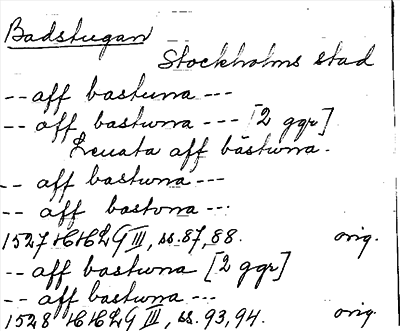 Badstugan
Stockholms stad
-- aff bastuna ---
-- aff bastwna --- [2 ggr]
aff bästwna.
-- aff bastwna ---
-- aff bastvna ---
1527 HHLG III, ss. 87, 88. orig.
-- aff bastwna [2 ggr]
-- aff bastwna ---
1528 HHLG III, ss. 93, 94. orig.